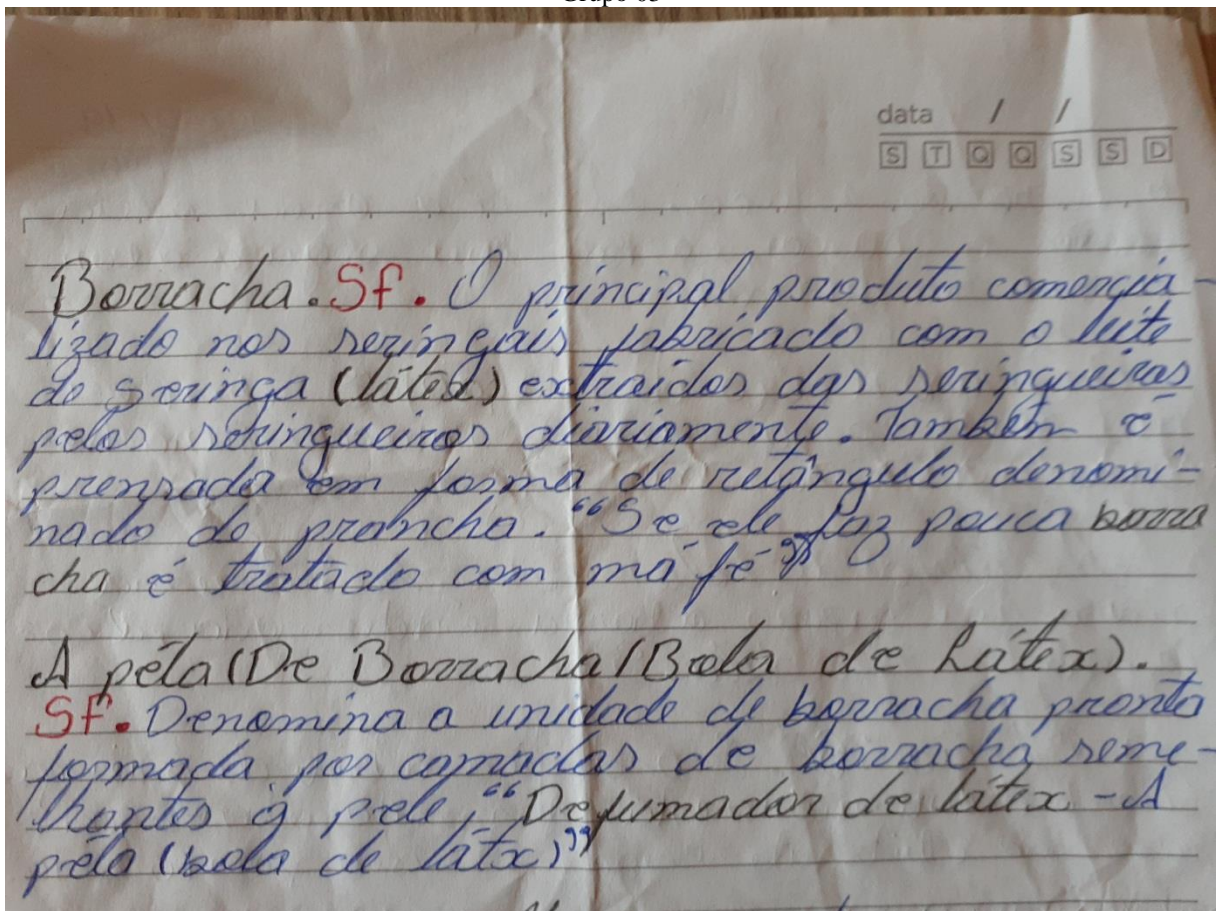 data / /
S T Q Q S S D
Borracha. Sf. O principal produto comercia-
lizado nos seringais fabricado com o leite
de seringa (látex) extraidos das seringueiras
pelos seringueiros diariamente. Também é
prensada em forma de retângulo denomi-
nado de prancha. "Se ele faz pouca borra
cha é tratado com má fé"
A péla (De Borracha/Bola de Látex).
Sf. Denomina a unidade de borracha pronta
formada por camadas de borracha seme-
lhantes à pele, "Defumador de látex - A
péla (bola de látx)"